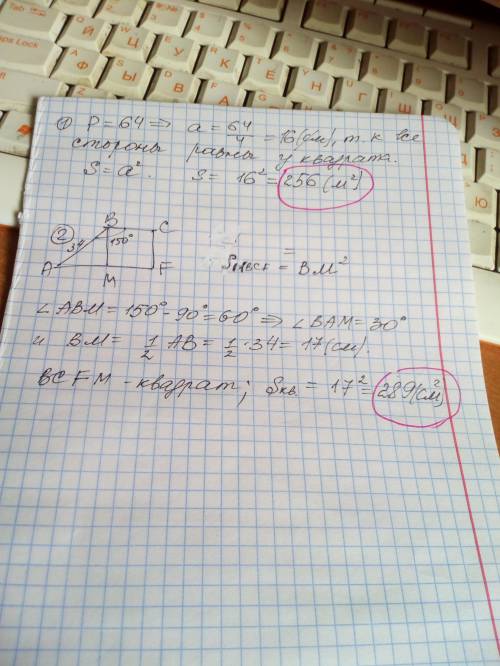 1) P = 64 ⇒ a = 64/4 = 16 (см), т. к все
стороны равны у квадрата.
S = a². S = 16² = 256 (м²)
2) B C
34 150°
A M F
SMBCF = BM²
∠ABM = 150° - 90° = 60° ⇒ ∠BAM = 30°
и BM = 1/2 AB = 1/2 · 34 = 17 (см).
BCFM - квадрат; Sкв. = 17² = 289 (см²)